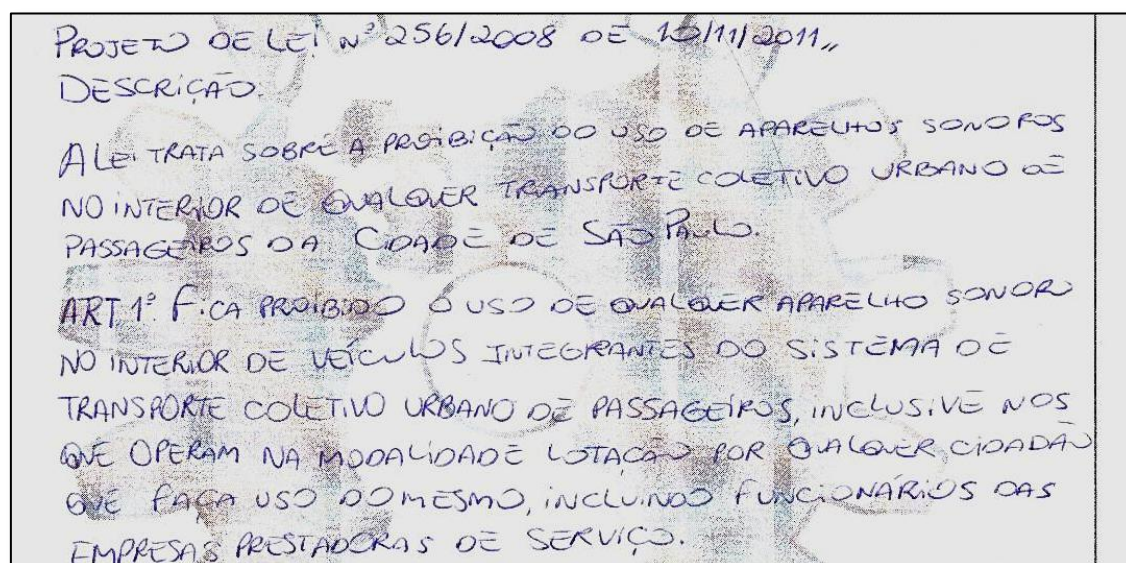 PROJETO DE LEI Nº 256/2008 DE 10/11/2011,,
DESCRIÇÃO:
A LEI TRATA SOBRE A PROIBIÇÃO DO USO DE APARELHOS SONOROS
NO INTERIOR DE QUALQUER TRANSPORTE COLETIVO URBANO DE
PASSAGEIROS DA CIDADE DE SÃO PAULO.
ART. 1º. FICA PROIBIDO O USO DE QUALQUER APARELHO SONORO
NO INTERIOR DE VEÍCULOS INTEGRANTES DO SISTEMA DE
TRANSPORTE COLETIVO URBANO DE PASSAGEIROS, INCLUSIVE NOS
QUE OPERAM NA MODALIDADE LOTAÇÃO POR QUALQUER CIDADÃO
QUE FAÇA USO DO MESMO, INCLUINDO FUNCIONÁRIOS DAS
EMPRESAS PRESTADORAS DE SERVIÇO.